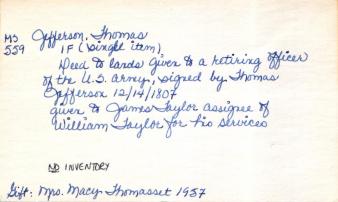 MS Jefferson, Thomas
559 1F (single item)
Deed to lands given to a retiring officer
of the U.S. army, signed by Thomas
Jefferson 12/14/1807
given to James Taylor assignee of
William Taylor for his services
NO INVENTORY
Gift: Mrs. Macy Thomasset 1957